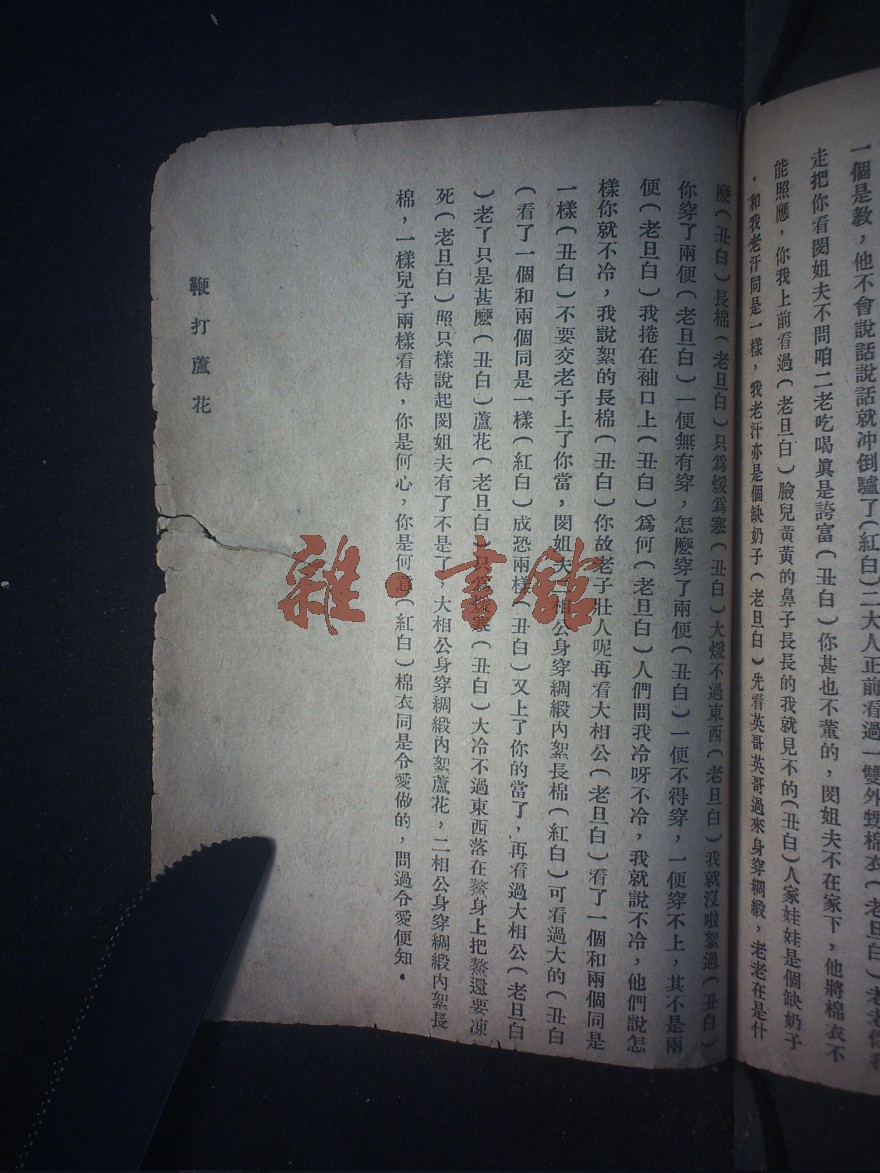 一個是教，他不會說話說話就冲倒驢了(紅白)二大人正前看過一雙外甥棉衣(老旦白)老老你我
走把你看閔姐夫不問咱二老吃喝眞是誇富(丑白)你甚也不董的，閔姐夫不在家下，他將棉衣不
能照應，你我上前看過(老旦白)臉兒黃黃的鼻子長長的我就見不的(丑白)人家娃娃是個缺奶子
，和我老汗同是一樣，我老汗亦是個缺奶子(老旦白)先看英哥英哥過來身穿綢緞，老老在是什
麽(丑白)長棉(老旦白)只爲煖爲寒(丑白)大煖不過東西(老旦白)我就沒啦絮過(丑白)
你穿了兩便(老旦白)一便無有穿，怎麽穿了兩便(丑白)一便不得穿，一便穿不上，其不是兩
便(老旦白)我捲在袖口上(丑白)爲何(老旦白)人們問我冷呀不冷，我就說不冷，他們說怎
樣你就不冷，我說絮的長棉(丑白)你故老子壯人呢再看大相公(老旦白)看了一個和兩個同是
一樣(丑白)不要交老子上了你當，閔姐夫相公身穿綢緞內絮長棉(紅白)可看過大的(丑白
(看了一個和兩個同是一樣(紅白)成恐兩樣(丑白)又上了你的當了，再看過大相公(老旦白
)老了只是甚麽(丑白)蘆花(老旦白)只爲煖寒(丑白)大冷不過東西落在鰲身上把鰲還要凍
死(老旦白)照只樣說起閔姐夫有了不是了，大相公身穿綢緞內絮蘆花，二相公身穿綢緞內絮長
棉，一樣兒子兩樣看待，你是何心，你是何意(紅白)棉衣同是令愛做的，問過令愛便知。
鞭打蘆花
雜·書館